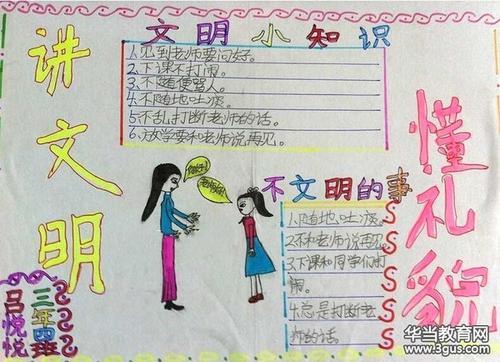 文明小知识
1.见到老师要问好。
2.下课不打闹。
3.不随便骂人。
4.不随地吐痰。
5.不乱打断老师的话。
6.放学要和老师说再见。
讲文明
懂礼貌
不文明的事
1.随地吐痰。
2.不和老师说再见。
3.下课和同学们打
闹。
4.总是打断老
师的话。
三年四班
吕悦悦
华当教育网
www.3gus.com